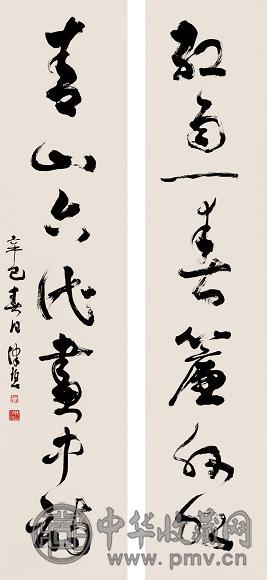 紅雨一春簾外
青山六代畫中
辛巳春日
中华收藏网
www.pmv.cn